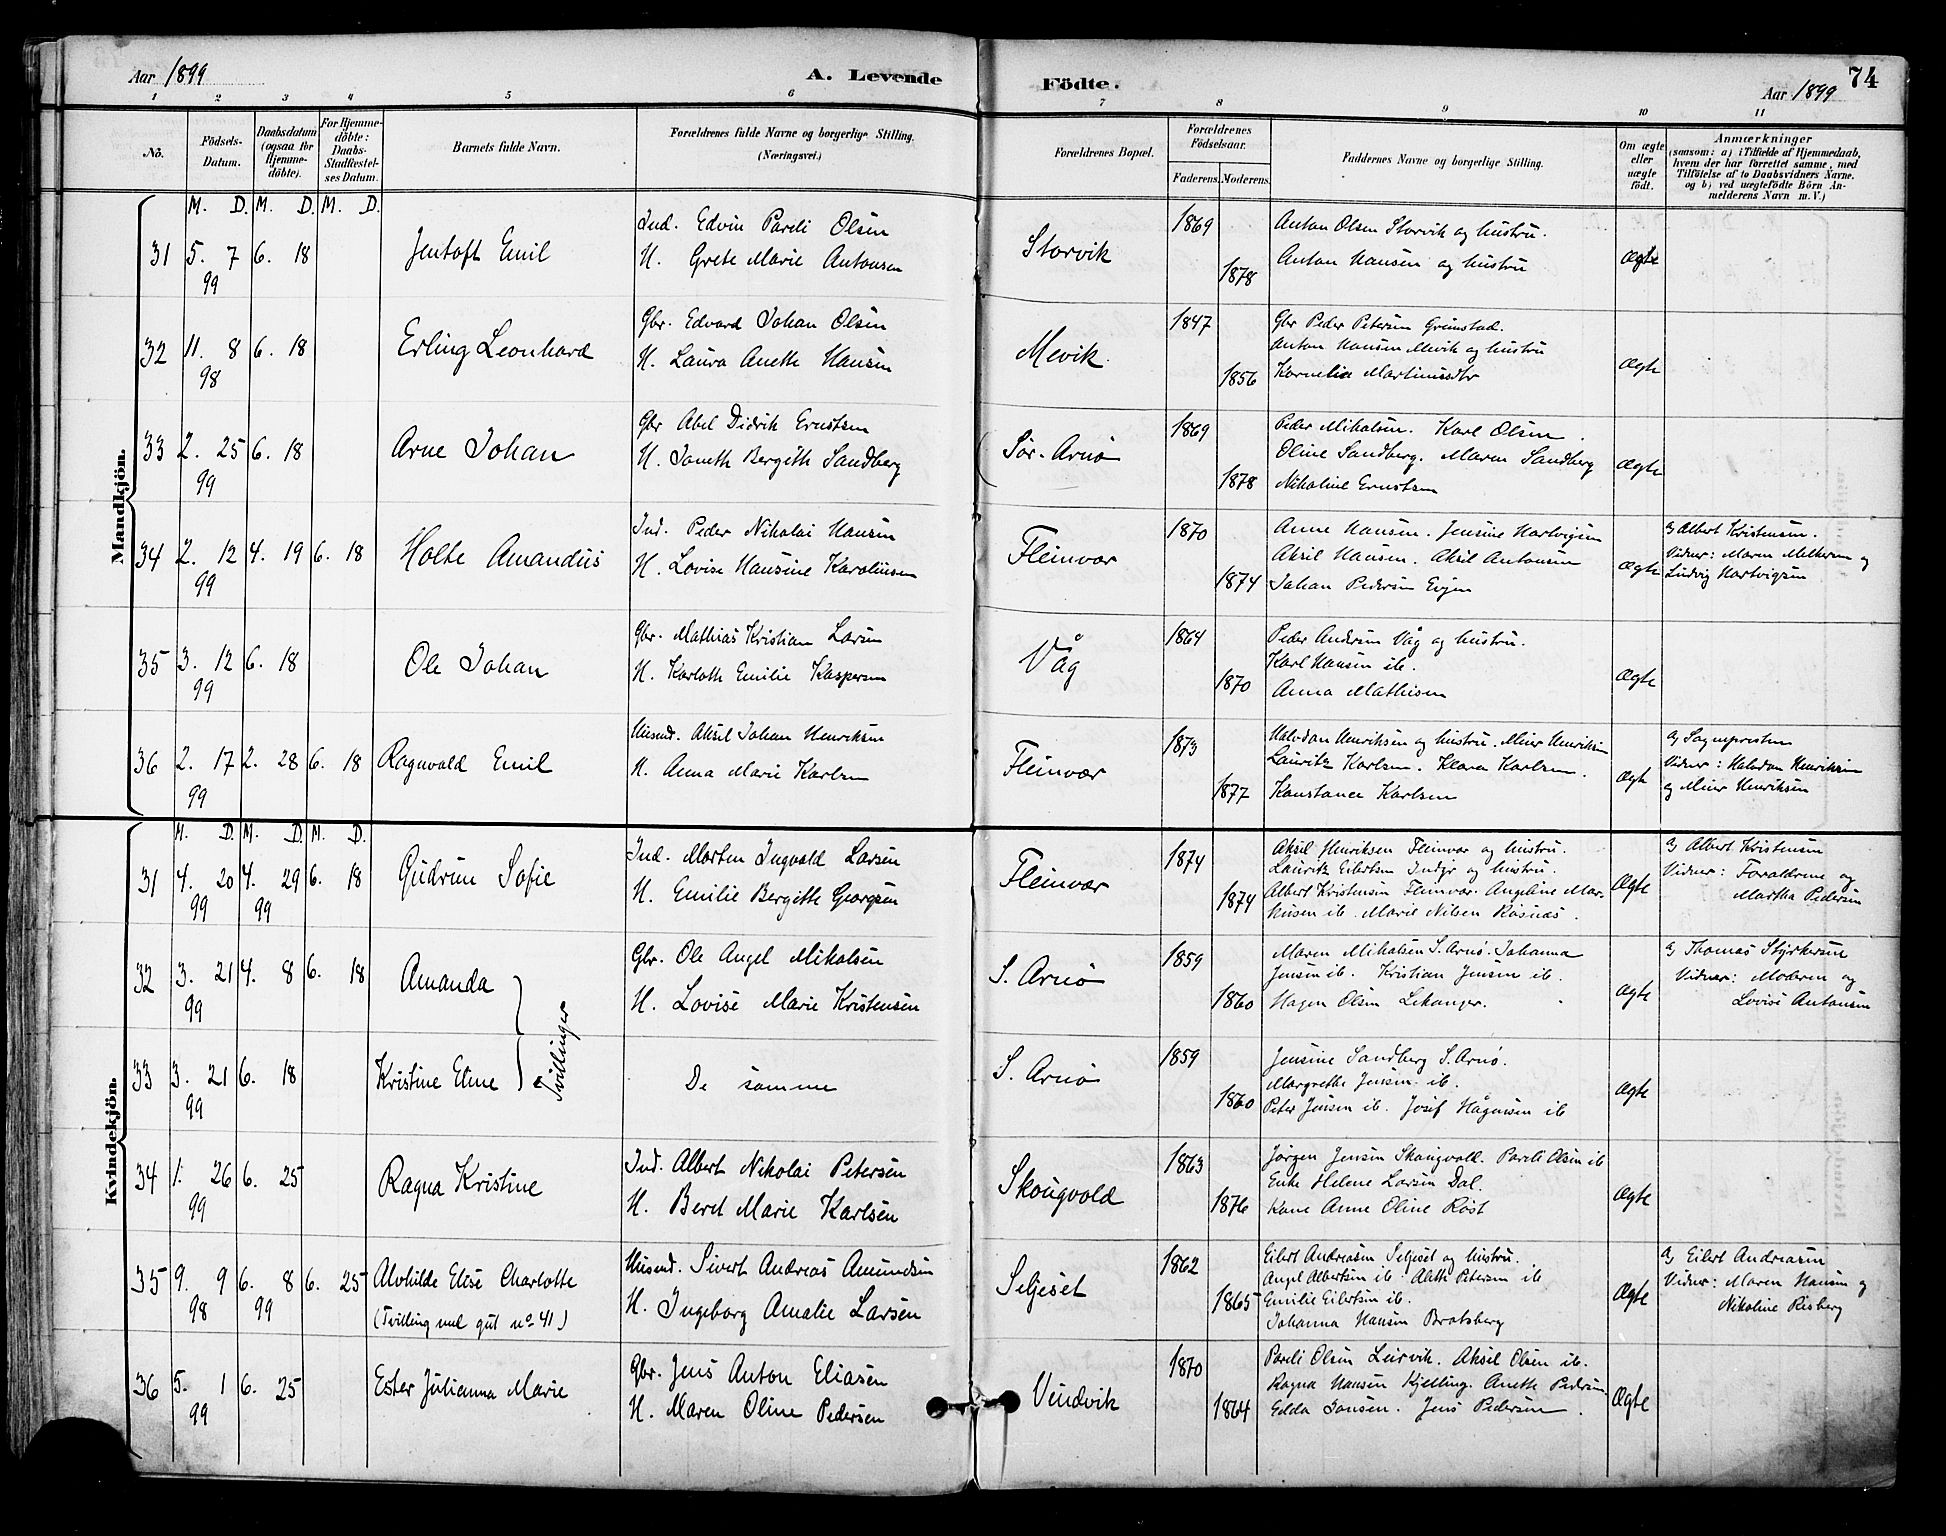 Aar 1899
A. Levende
Födte.
Aar 1899
74
1 2 3 4 5 6 7 8 9 10 11
Nô.
Födsels-Datum.
Daabsdatum (ogsaa for Hjemme-döbte).
For Hjemme-döbte: Daabs-Stadfæstel-ses Datum.
Barnets fulde Navn.
Forældrenes fulde Navne og borgerlige Stilling.
(Næringsvei.)
Forældrenes Bopæl.
Forældrenes Födselsaar.
Faderens. Moderens.
Faddernes Navne og borgerlige Stilling.
Om ægte eller uægte födt.
Anmærkninger
(saasom: a) i Tilfælde af Hjemmedaab,
hvem der har forrettet samme, med
Tilföielse af to Daabsvidners Navne.
og b) ved uægtefödte Börn An-
melderens Navn m. V.)
Mandkjön.
M. D. M. D. M. D.
31 5. 7 99 6. 18
Jentoft Emil
Ind. Edvin Pareli Olsen
H. Grete Marie Antonsen
Storvik
1869
1878
Anton Olsen Storvik og hustru.
Anton Hansen og hustru
Ægte
32 11. 8 98 6. 18
Erling Leonhard
Gbr. Edvard Johan Olsen
H. Laura Anette Hansen
Mevik.
1847
1856
Gbr Peder Petersen Grimstad.
Anton Hansen Mevik og hustru
Kornelia Martinusdtr
Ægte
33 2. 25 99 6. 18
Arne Johan
Gbr Abel Didrik Ernstsen
H. Janeth Bergithe Sandberg
Sør-Arnø
1869
1878
Peder Mikalsen. Karl Olsen.
Oline Sandberg. Maren Sandberg
Nikoline Ernstsen
Ægte
34 2. 12 99 4. 19 6. 18
Holte Amandus
Ind. Peder Nikolai Hansen
H. Lovise Hansine Karoliussen
Fleinvær
1870
1874
Anne Hansen. Jensine Hartvigsen
Aksel Hansen. Aksel Antonsen
Johan Pedersen Evjen
Ægte
a) Albert Kristensen.
Vidner: Maren Melkersen og
Ludvig Hartvigsen
35 3. 12 99 6. 18
Ole Johan
Gbr. Mathias Kristian Larsen
H. Karlotte Emilie Kaspersen
Våg
1864
1870
Peder Andersen Våg og hustru.
Karl Hansen ib.
Anna Mathisen
Ægte
36 2. 17 99 2. 28 6. 18
Ragnvald Emil
Husmd. Aksel Johan Henriksen
H. Anna Marie Karlsen
Fleinvær
1873
1877
Halvdan Henriksen og hustru. Mier Henriksen
Lauritz Karlsen. Klara Karlsen.
Konstance Karlsen
Ægte
a) Sogneprosten
Vidner: Halvdan Henriksen
og Mier Henriksen
Kvindekjön.
M. D. M. D. M. D.
31 4. 20 99 4. 29 99 6. 18
Gudrun Sofie
Ind. Morten Ingvald Larsen
H. Emilie Bergithe Georgsen
Fleinvær
1874
1874
Aksel Henriksen Fleinvær og hustru.
Lauritz Eilertsen Indyr og hustru.
Albert Kristensen Fleinvær. Angeline Mar-
kusen ib. Marie Nilsen Røsnæs.
Ægte
a) Albert Kristensen
Vidner: Forældrene og
Martha Pedersen
32 3. 21 99 4. 8 6. 18
Amanda
Tvillinger
Gbr. Ole Angel Mikalsen
H. Lovise Marie Kristensen
S. Arnø
1859
1860
Maren Mikalsen S. Arnø. Johanna
Jensen ib. Kristian Jensen ib.
Hagen Olsen Lekanger.
Ægte
a) Thomas Styrkersen
Vidner: Moderen og
Lovise Antonsen
33 3. 21 99 6. 18
Kristine Eline
De samme
S. Arnø
1859
1860
Jensine Sandberg S. Arnø.
Margrethe Jensen ib.
Peter Jensen ib. Josef Hågensen ib
Ægte
34 1. 26 99 6. 25
Ragna Kristine
Ind. Albert Nikolai Petersen
H. Beret Marie Karlsen
Skougvold
1863
1876
Jørgen Jensen Skougvold. Pareli Olsen ib
Enke Helene Larsen Dal.
Kone Anne Oline Røst
Ægte
35 9. 9 98 6. 8 99 6. 25
Alvhilde Elise Charlotte
(Tvilling med gut no. 41)
Husmd. Sivert Andreas Amundsen
H. Ingeborg Amalie Larsen
Seljeset
1862
1865
Eilert Andreasen Seljeset og hustru.
Angel Albertsen ib. Aleth Petersen ib
Emilie Eilertsen ib.
Johanna Hansen Bratsberg
Ægte
a) Eilert Andreasen
Vidner: Maren Hansen og
Nikoline Risberg
36 5. 1 99 6. 25
Ester Julianna Marie
Gbr. Jens Anton Eliasen
H. Maren Oline Pedersen
Vindvik
1870
1864
Pareli Olsen Leirvik. Aksel Olsen ib.
Ragna Hansen Kjelling. Aneth Pedersen
Edda Jonsen. Jens Pedersen.
Ægte